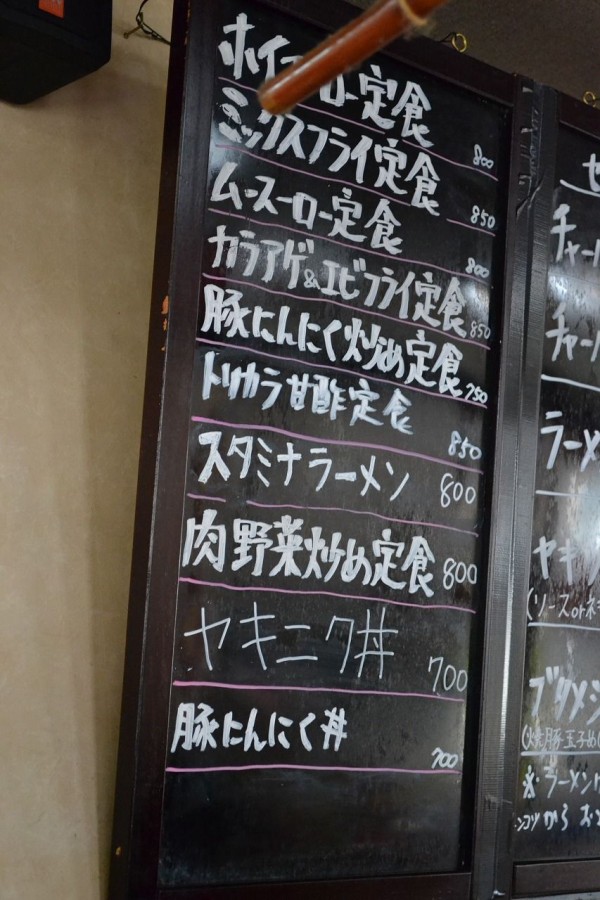 ホイコーロー定食 800
ミックスフライ定食 850
ムースーロー定食 800
カラアゲ&エビフライ定食 850
豚にんにく炒め定食 750
トリカラ甘酢定食 850
スタミナラーメン 800
肉野菜炒め定食 800
ヤキニク丼 700
豚にんにく丼 700
セ
チャー
チャー
ラーメ
ヤキ
(ソースorネギ
ブタメシ
(焼豚玉子め
※ラーメン
ンコツ から お